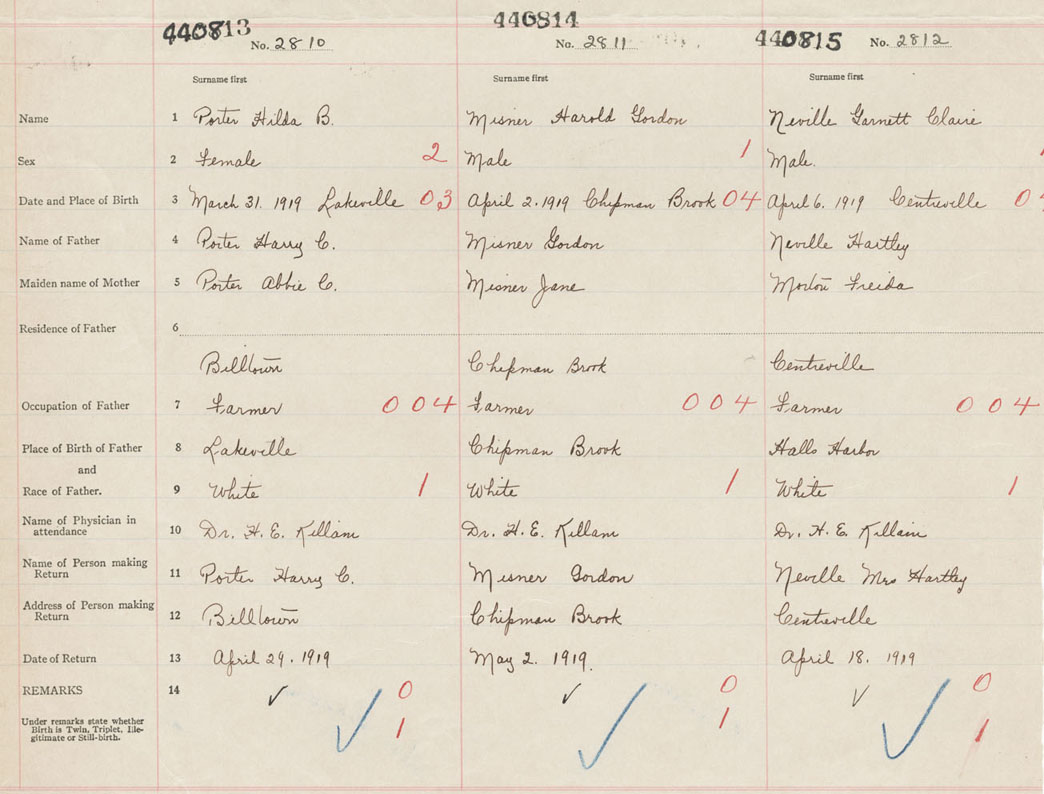 440813 440814 440815
No. 2810 No. 2811 No. 2812
Surname first Surname first Surname first
Name 1 Porter Hilda B. Misner Harold Gordon Neville Garnett Claire
Sex 2 Female 2 Male 1 Male. 1
Date and Place of Birth 3 March 31. 1919 Lakeville 03 April 2. 1919 Chipman Brook 04 April 6. 1919 Centreville 04
Name of Father 4 Porter Harry C. Misner Gordon Neville Hartley
Maiden name of Mother 5 Porter Abbie C. Misner Jane Morton Freida
Residence of Father 6
Billtown Chipman Brook Centreville
Occupation of Father 7 Farmer 004 Farmer 004 Farmer 004
Place of Birth of Father 8 Lakeville Chipman Brook Halls Harbor
and
Race of Father. 9 White 1 White 1 White 1
Name of Physician in
attendance 10 Dr. H. E. Killam Dr. H. E. Killam Dr. H. E. Killam
Name of Person making
Return 11 Porter Harry C. Misner Gordon Neville Mrs Hartley
Address of Person making
Return 12 Billtown Chipman Brook Centreville
Date of Return 13 April 29. 1919 May 2. 1919. April 18. 1919
REMARKS 14 ✓ 0 ✓ 0 ✓ 0
Under remarks state whether
Birth is Twin, Triplet, Ille-
gitimate or Still-birth. ✓ 1 ✓ 1 ✓ 1